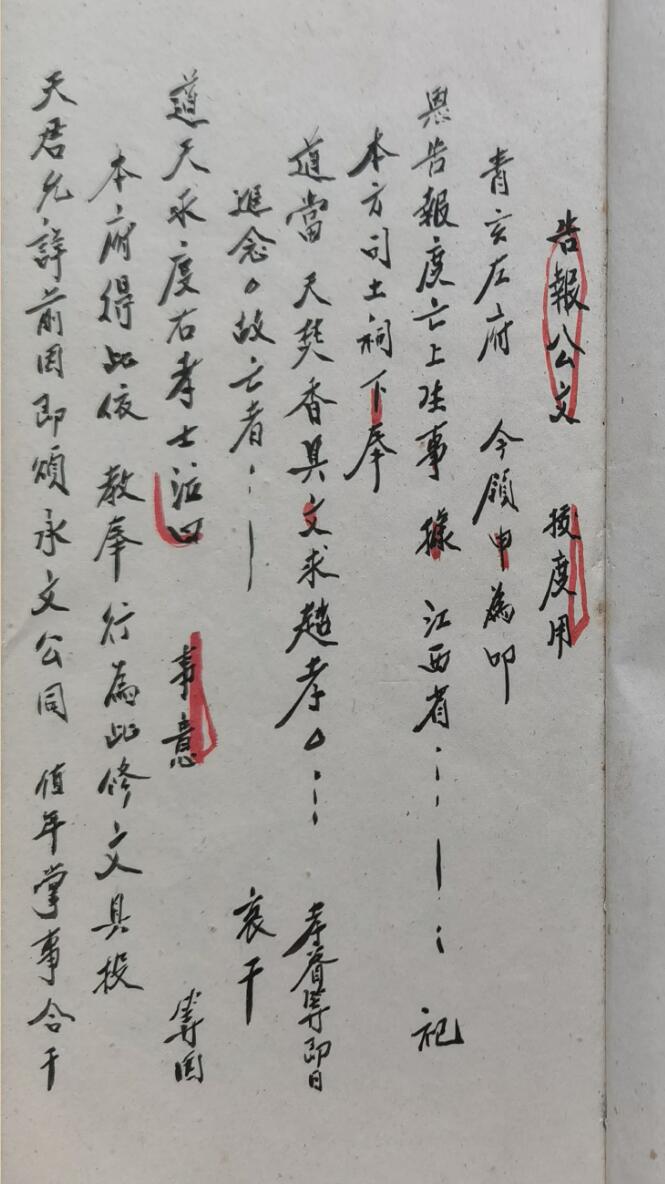 告報公文 拔度用
青玄左府 今領申為叩
恩告報度亡上生事 據 江西省 祀
本方司土祠下奉
道當天焚香具文求趨孝 孝眷等即日
追念 故亡者 哀干
道天求度右孝士 泣叩 事意 專因
本府得此依 教奉行為此修文具投
天君允詳前因即頒承文公同 值年掌事合干